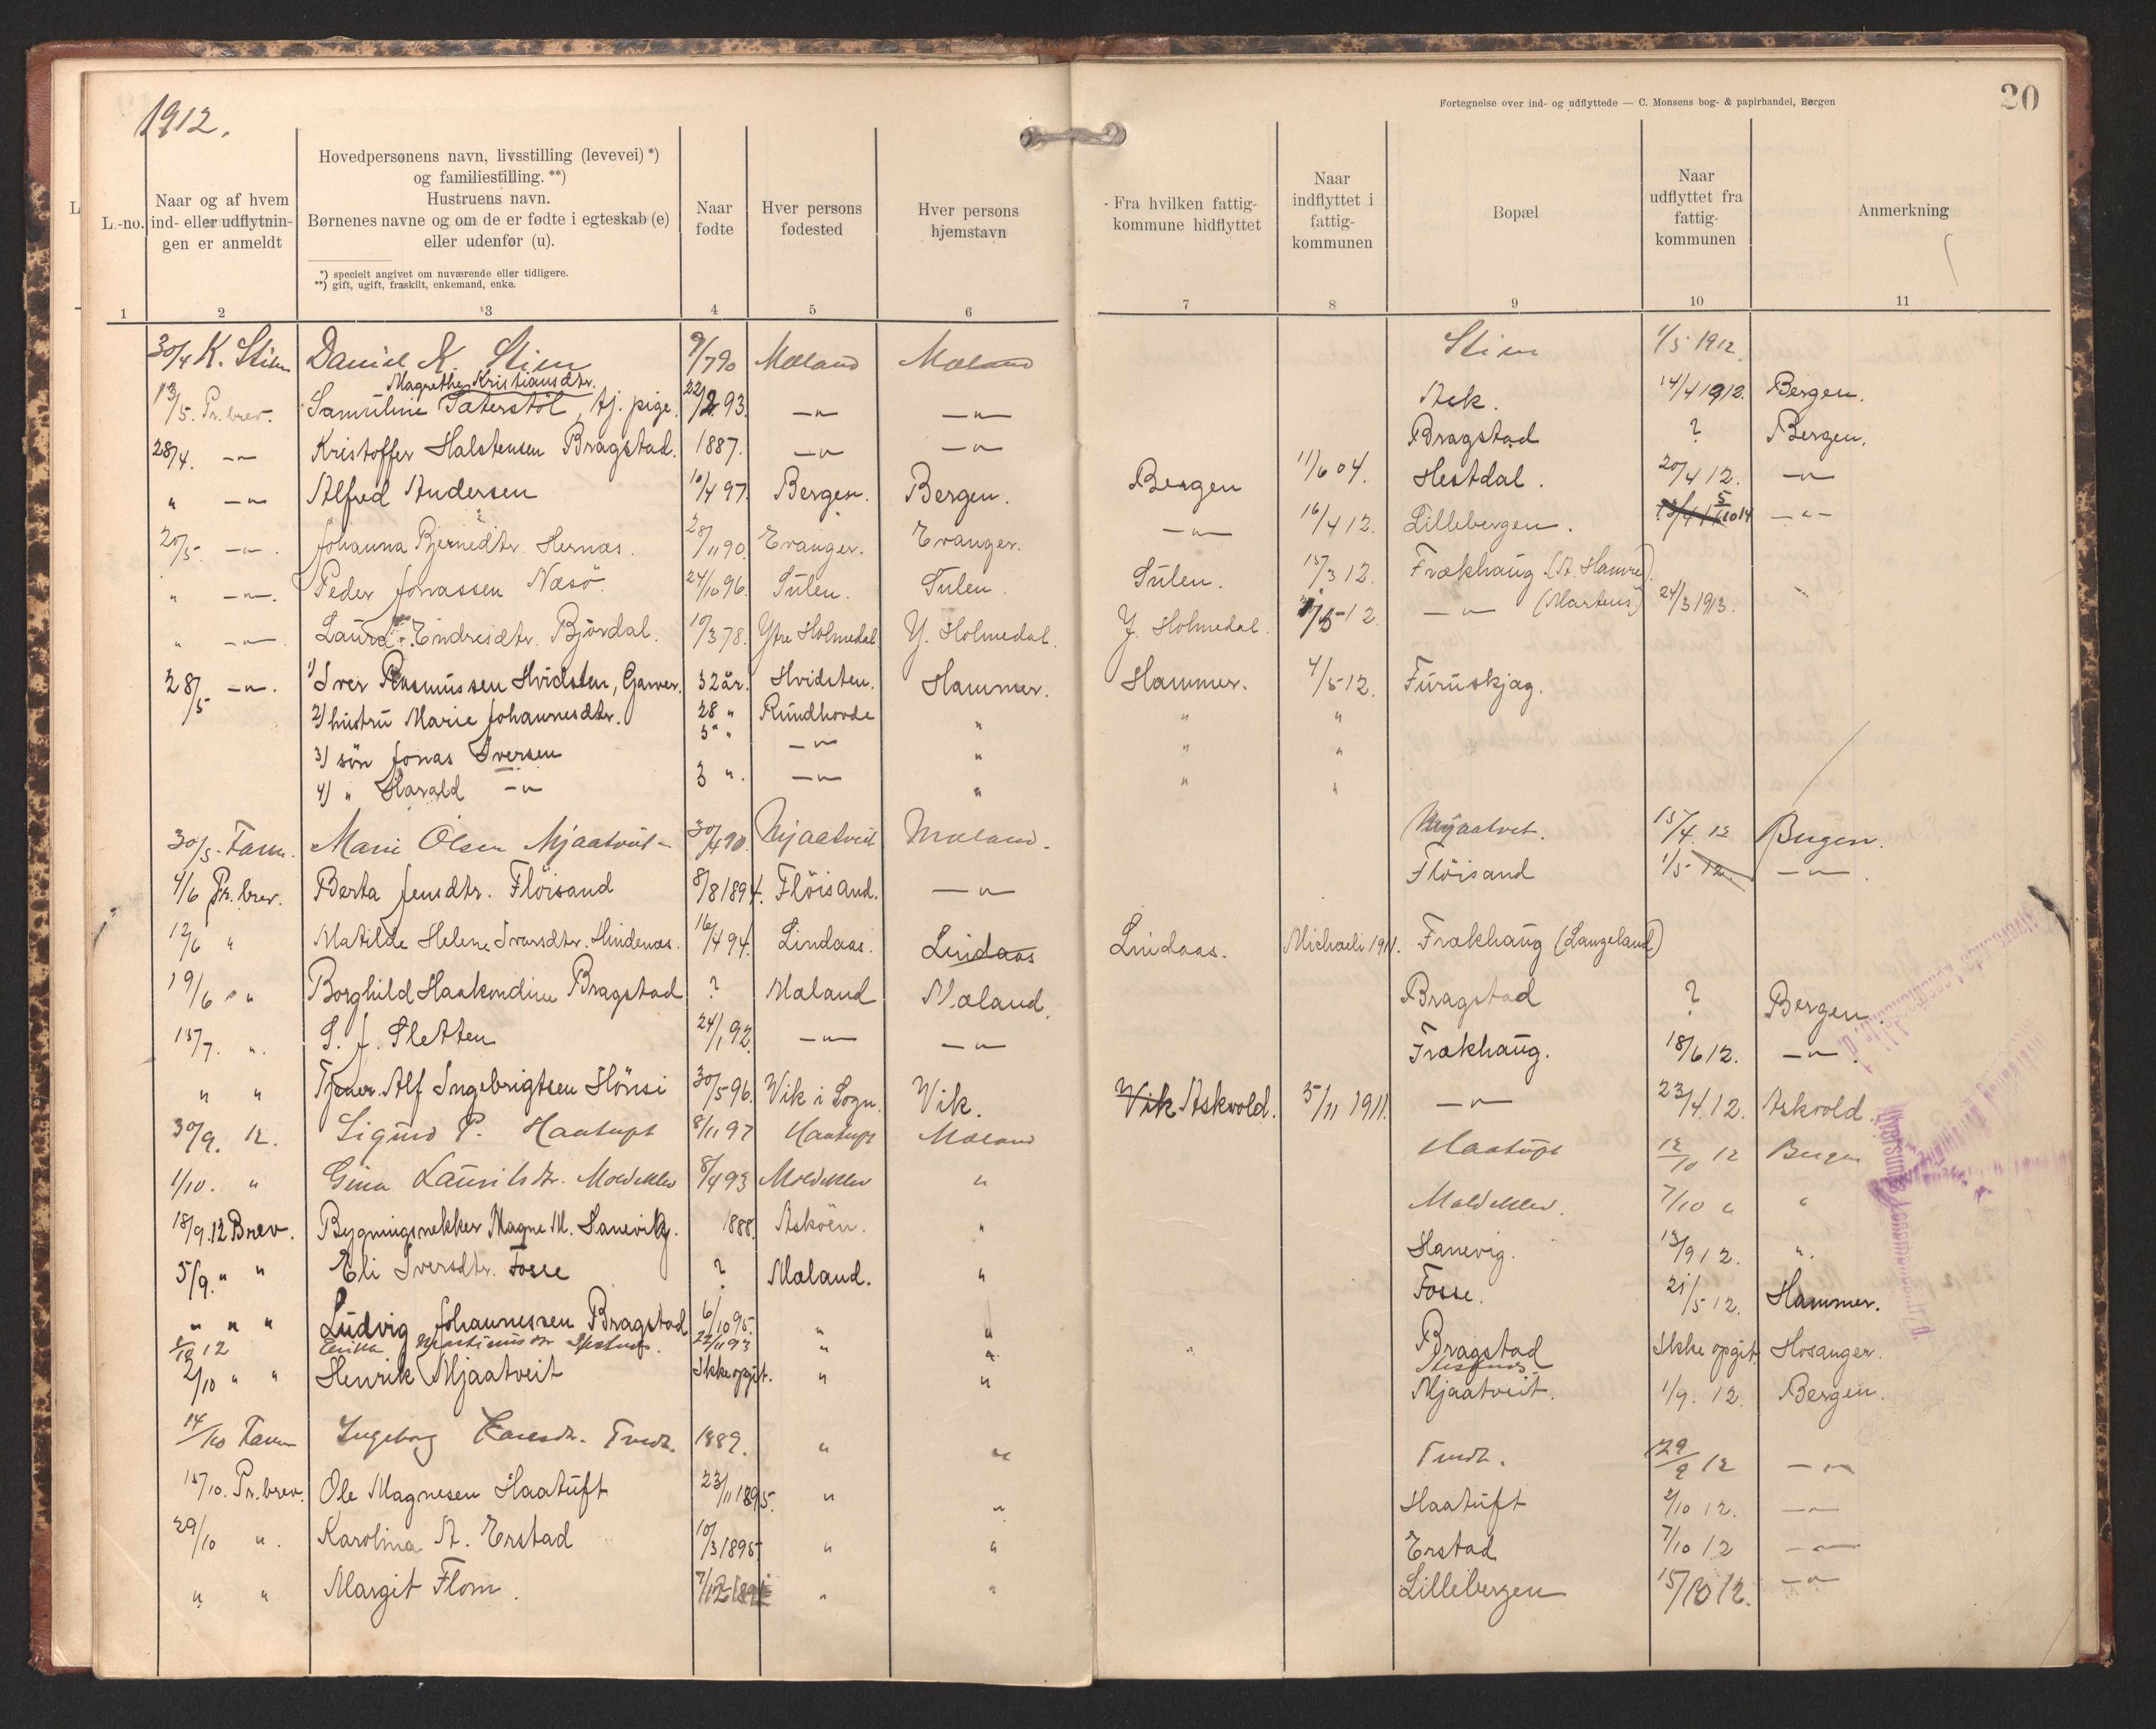 1912.
Fortegnelse over ind- og udflyttede — C. Monsens bog- & papirhandel, Bergen
20
L.-no.
Naar og af hvem ind- eller udflytnin-gen er anmeldt
Hovedpersonens navn, livsstilling (levevei) *)
og familiestilling. **)
Hustruens navn.
Børnenes navne og om de er fødte i egteskab (e)
eller udenfor (u).
*) specielt angivet om nuværende eller tidligere.
**) gift, ugift, fraskilt, enkemand, enke.
Naar fødte
Hver persons fødested
Hver persons hjemstavn
Fra hvilken fattig-kommune hidflyttet
Naar indflyttet i fattig-kommunen
Bopæl
Naar udflyttet fra fattig-kommunen
Anmerkning
1 2 3 4 5 6 7 8 9 10 11
30/4 K. Stien Daniel K. Stien 9/7 90 Mæland Mæland Stien 1/5 1912
Magrethe Kristiansdtr.
13/5. Pr. brev. Samuline Sæterstöl, tj. pige. 22/2 93. —"— —"— Ask. 14/4 1912. Bergen.
28/4. —"— Kristoffer Halstensen Bragstad. 1887. —"— —"— Bragstad ? Bergen.
" —"— Alfred Andersen 10/4 97. Bergen. Bergen. Bergen 11/6 04. Hestdal. 20/4 12. —"—
20/5 —"—. Johanna Bjernedtr. Hernæs. 28/11 90. Evanger. Evanger. —"— 16/4 12. Lillebergen. —"—
" —"—. Peder Jonassen Næsö 24/10 96. Sulen. Sulen. Sulen. 15/3 12. Frækhaug (A. Hamre).
" —"— Endresdtr. Björdal. 10/3 78. Ytre Holmedal Y. Holmedal. Y. Holmedal. 12. —"— (Martens) 24/3 1913.
28/5 —"—. 1) Iver Rasmussen Hvidsten, Garver. 32 år. Hvidsten. Hammer. Hammer. 4/5 12. Furuskjæg.
2) hustru Marie Johannesdtr. 28 " Rundhovde " " "
3) sön Jonas Iversen 5 " —"— " " "
4) " Harald —"— 3 ". —"— " " "
30/5. Marie Olsen Mjaatveit 30/4 90. Mjaatveit Mæland. Mjaatvet. 15/4. 12 Bergen.
4/6 Pr. brev. Berta Jensdtr. Flöisand 8/8 1894. Flöisand. —"— Flöisand 1/5 12. —"—.
12/6 " Matilde Helene Ivarsdtr. Hindenæs. 16/4 94. Lindaas. Lindaas Lindaas. Michaeli 1911. Frækhaug (Langeland)
19/6 " Borghild Haakondine Bragstad ? Mæland Mæland. Bragstad ? Bergen.
15/7. ". S. J. Sletten 24/1 92. —"— —"— Frækhaug. 18/6 12. —"—.
" " Tjener. Alf Ingebrigtsen Hönsi 30/5 96. Vik i Sogn. Vik. Vik Askvold. 5/11 1911. —"— 23/4. 12. Askvold.
30/9. 12. Sigurd P. Haatuft 8/11 97 Haatuft Mæland Haatuft 12/10 12 Bergen
1/10. " Gina Lauritsdtr. Moldeklev 8/4 93 Moldeklev " Moldeklev. 7/10 " "
18/9. 12 Brev. Bygningsnekker Magne M. Hanevik. 1888. Asköen. " Hanevig. 13/9 12. ".
5/9. " " Eli Iversdtr. Fosse ? Mæland. " Fosse. 21/5 12. Hammer.
" " " Ludvig Johannessen Bragstad 6/10 95. " " Bragstad Ikke opgit. Hosanger.
12 22/11 93 " "
2/10 " " Henrik Mjaatveit Ikke opgit. " " Mjaatveit. 1/9. 12. Bergen.
14/10 Ingeborg 1889. " " 29/9 12 —"—
15/10. Pr. brev. Ole Magnesen Haatuft 23/11 1895. " " Haatuft 2/10 12. —"—
29/10 ". Karolina A. Erstad 10/3 1895 " " Erstad 7/10 12 —"—
" " Margit Flom. " " Lillebergen 15/10 12. —"—